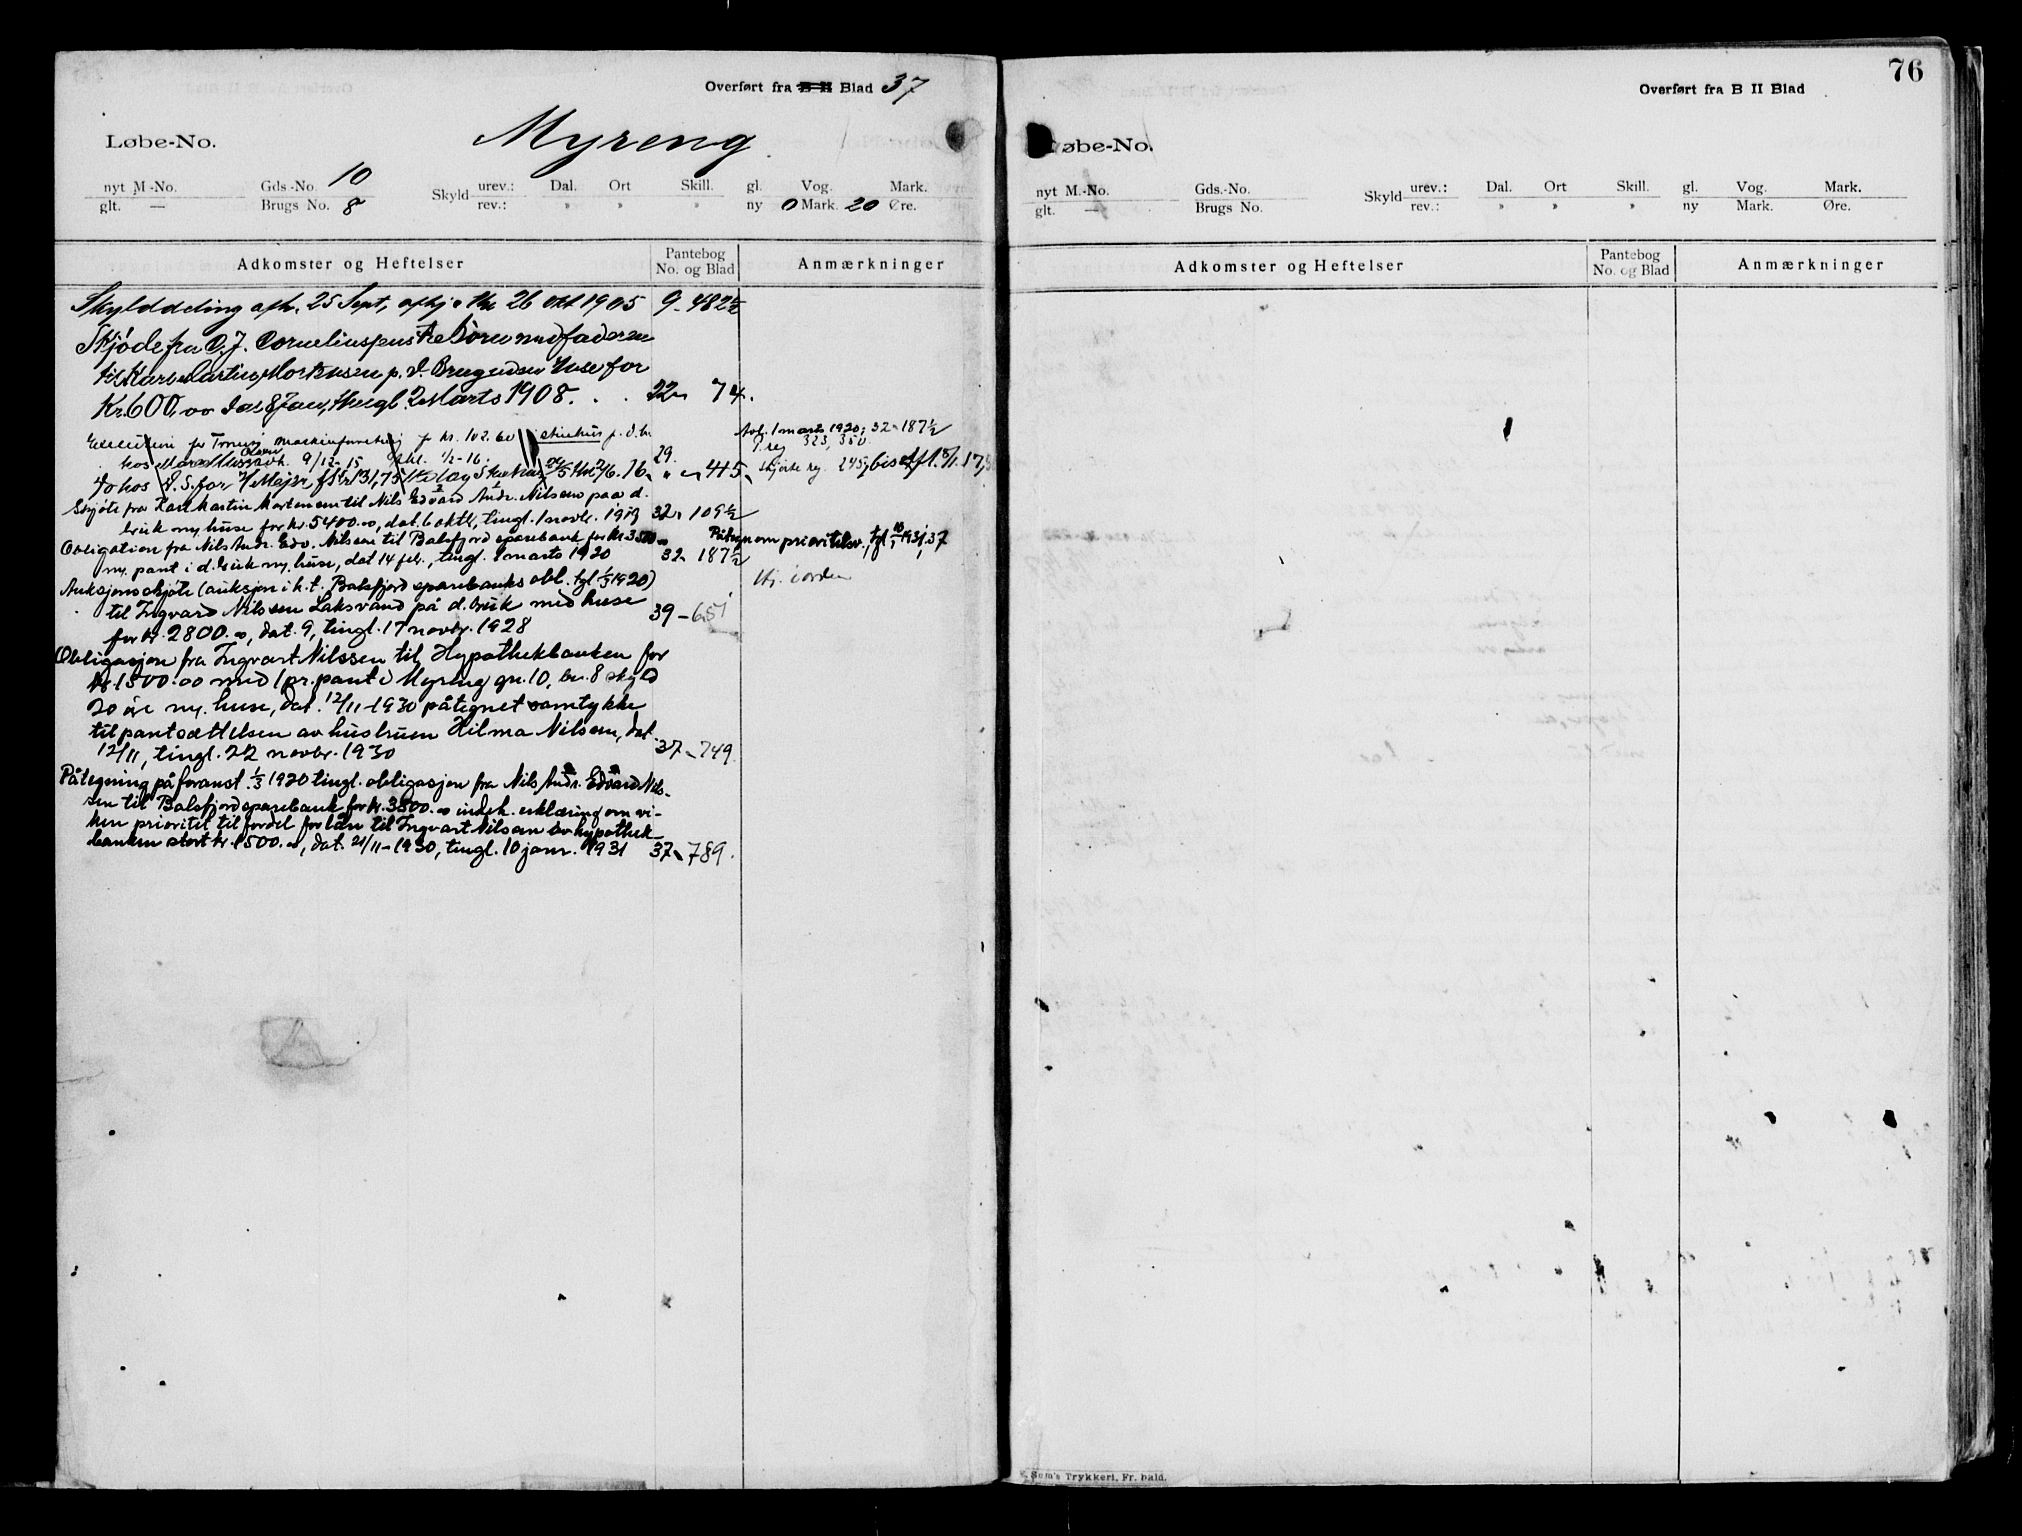 Overført fra B II Blad 37
Løbe-No.
Myreng
nyt M.-No. Gds.-No. 10 Skyld urev.: Dal. Ort Skill. gl. Vog. Mark.
glt. — Brugs No. 8 rev.: " " " ny 0 Mark. 20 Øre.
Adkomster og Heftelser Pantebog No. og Blad Anmærkninger
Skylddeling afh. 25 Sept, 26 okt 1905 9 - 482½
Skjøde fra O. J.
til Karl Martin Mortensen p. d. Brug for
Kr. 600,00 dat 8 Jan, thingl. 2 Marts 1908. 22 74.
kr. 102.60
hos 9/12-15 1/2-16. 29.
Do hos 131,75 16 " 415
Avl. 1 mars 1920; 32 - 187½
323, 350
Skjøte fra Karl Martin Mortensen til Nils Edvard Andr. Nilsen paa d.
bruk m. huse for kr. 5400.00, dat. 6 oktbr, tingl. 1 novbr. 1919 32 - 109½
Obligation fra Nils Andr. Edv. Nilsen til Balsfjord sparebank for kr 3800.00
m. pant i d. bruk m. huse, dat 14 feb., tingl. 1 marts 1920 32 187½
Påtegn om prioritetsv., tgl 10/1 1931, 37
Auksjonsskjøte (auksjon i h. t. Balsfjord sparebanks obl. tgl 1/3 1920)
til Ingvard Nilssen Laksvand på d. bruk med huse
for kr. 2800.00, dat. 9, tingl. 17 novbr. 1928 39 - 651
Obligasjon fra Ingvart Nilssen til Hypothekbanken for
kr. 1500.00 med 1 pr. pant i Myreng gn. 10, bn. 8 skyld
20 øre m. huse, dat. 12/11-1930 påtegnet samtykke
til pantsættelsen av hustruen Hilma Nilsen, dat.
12/11, tingl. 22 novbr. 1930 37 - 749
Påtegning på foranst. 1/3 1920 tingl. obligasjon fra Nils Andr. Edvard Nils-
sen til Balsfjord sparebank for kr. 3800.00 indeh. erklæring om vi-
ken prioritet til fordel for lån til Ingvart Nilsen av hypothek-
banken stort kr. 1500.00, dat. 21/11-1930, tingl. 10 janr. 1931 37 - 789.
76
Overført fra B II Blad
Løbe-No.
nyt M.-No. Gds.-No. Skyld urev.: Dal. Ort Skill. gl. Vog. Mark.
glt. — Brugs No. rev.: " " " ny Mark. Øre.
Adkomster og Heftelser Pantebog No. og Blad Anmærkninger
Sum's Trykkeri, Fr. hald.